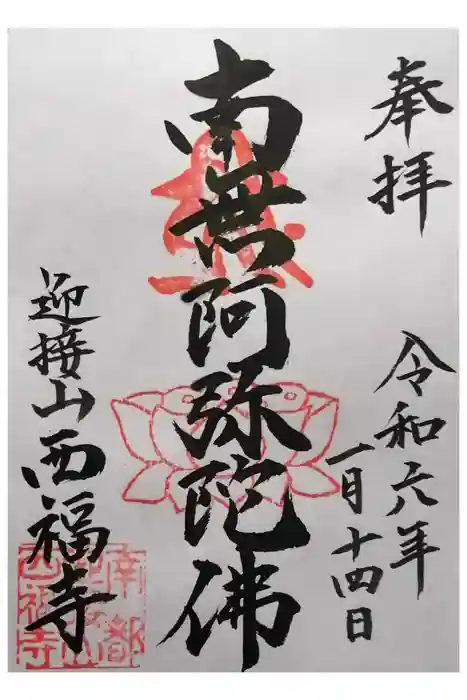 奉拝
令和六年
一月十四日
南無阿弥陀佛
迎接山西福寺